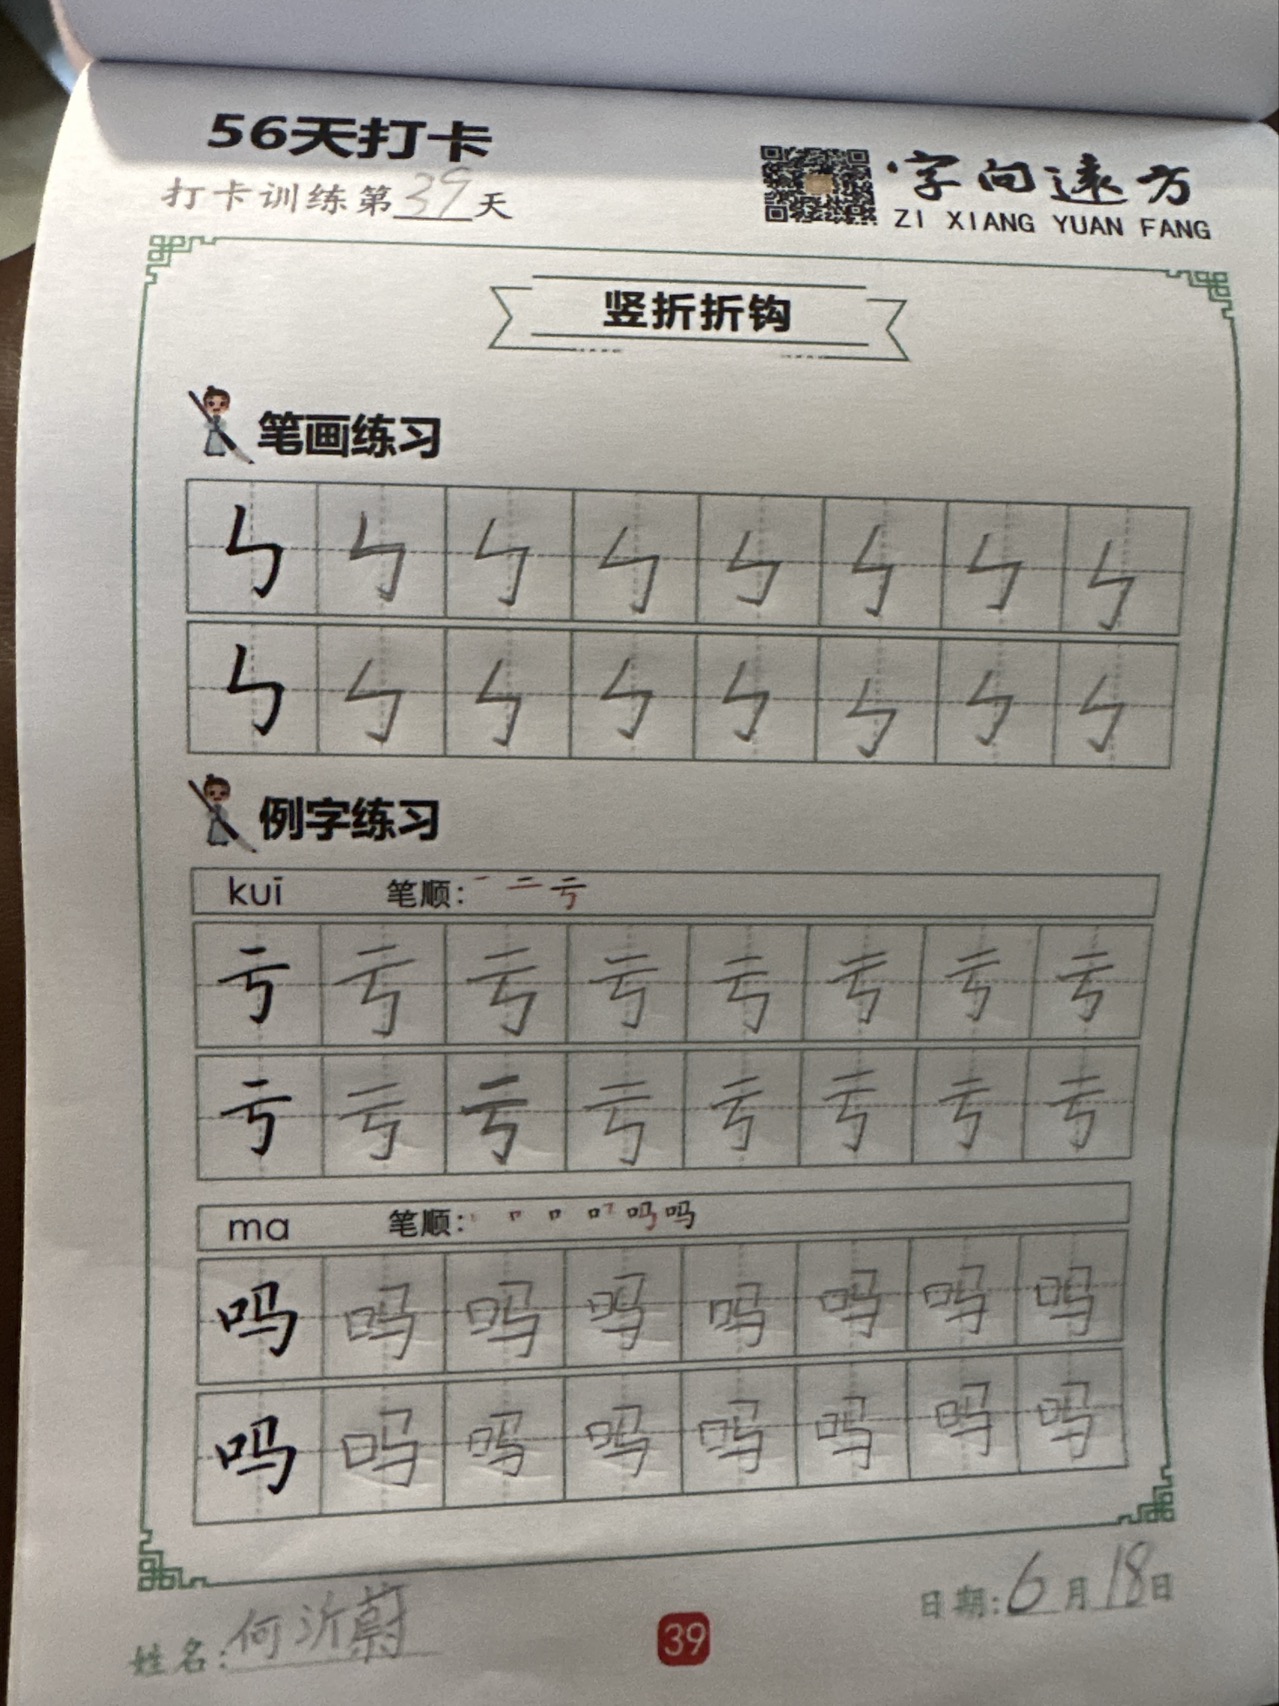 56天打卡
打卡训练第39天
字向远方
ZI XIANG YUAN FANG
竖折折钩
笔画练习
㇉ ㇉ ㇉ ㇉ ㇉ ㇉ ㇉ ㇉
㇉ ㇉ ㇉ ㇉ ㇉ ㇉ ㇉ ㇉
例字练习
kuī 笔顺: 一 二 亏
亏 亏 亏 亏 亏 亏 亏 亏
亏 亏 亏 亏 亏 亏 亏 亏
ma 笔顺:
吗 吗 吗 吗 吗 吗 吗 吗
吗 吗 吗 吗 吗 吗 吗 吗
姓名:何沂蔚
39
日期:6月18日